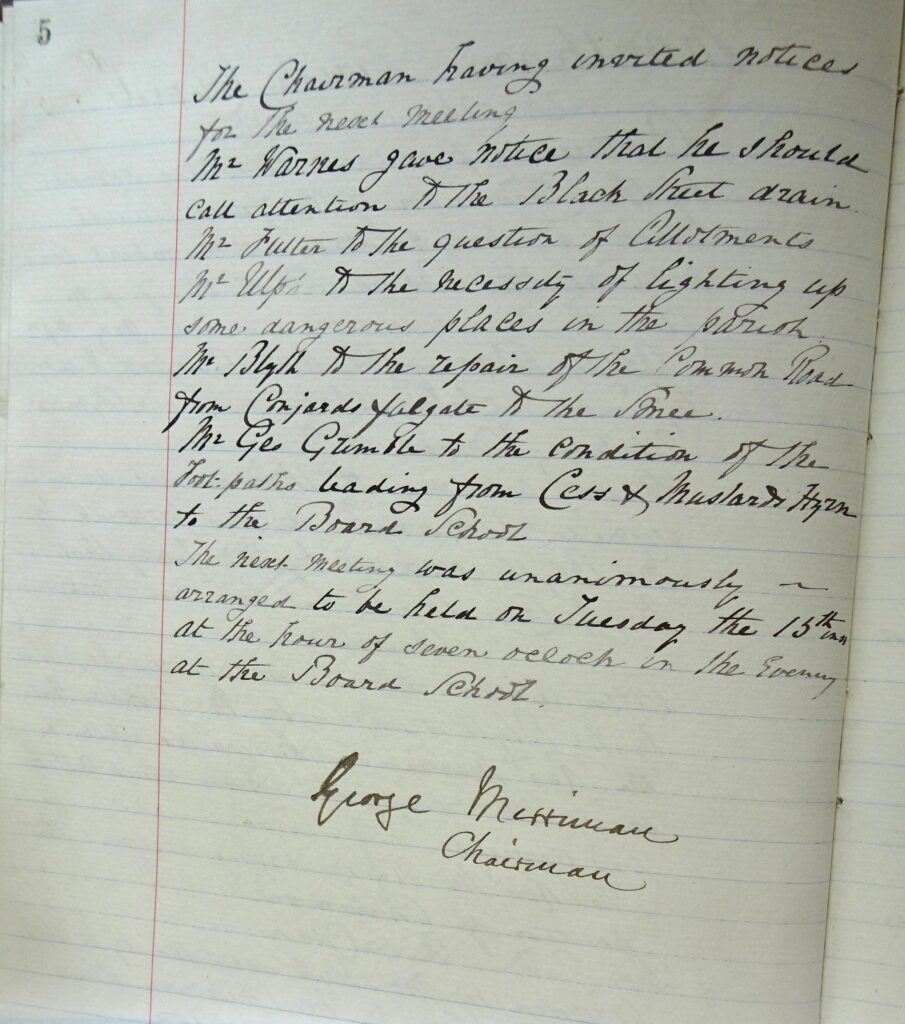 5
The Chairman having invited notices
for the next meeting
Mr Warnes gave notice that he should
call attention to the Black Street drain.
Mr Futter to the question of Allotments
Mr to the necessity of lighting up
some dangerous places in the parish.
Mr Blyth to the repair of the Common Road
from falgate to the
Mr Geo Grimble to the condition of the
Foot-paths leading from Cess & Mustards Hyrn
to the Board School
The next meeting was unanimously ~
arranged to be held on Tuesday the 15th inst
at the hour of seven oclock in the Evening
at the Board School.
George Merriman
Chairman